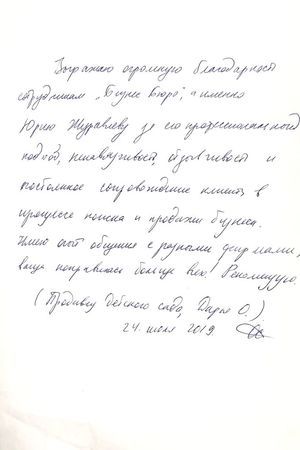 Выражаю огромную благодарность
сотрудникам „Бизнес Бюро", а именно
Юрию Журавлеву за его профессиональный
подход, ненавязчивость, отзывчивость и
постоянное сопровождение клиента в
процессе поиска и продажи бизнеса.
Имею опыт общения с разными фирмами,
ваша понравилась больше всех! Рекомендую.
(Продавец детского сада, Дарья О.)
24 июля 2019